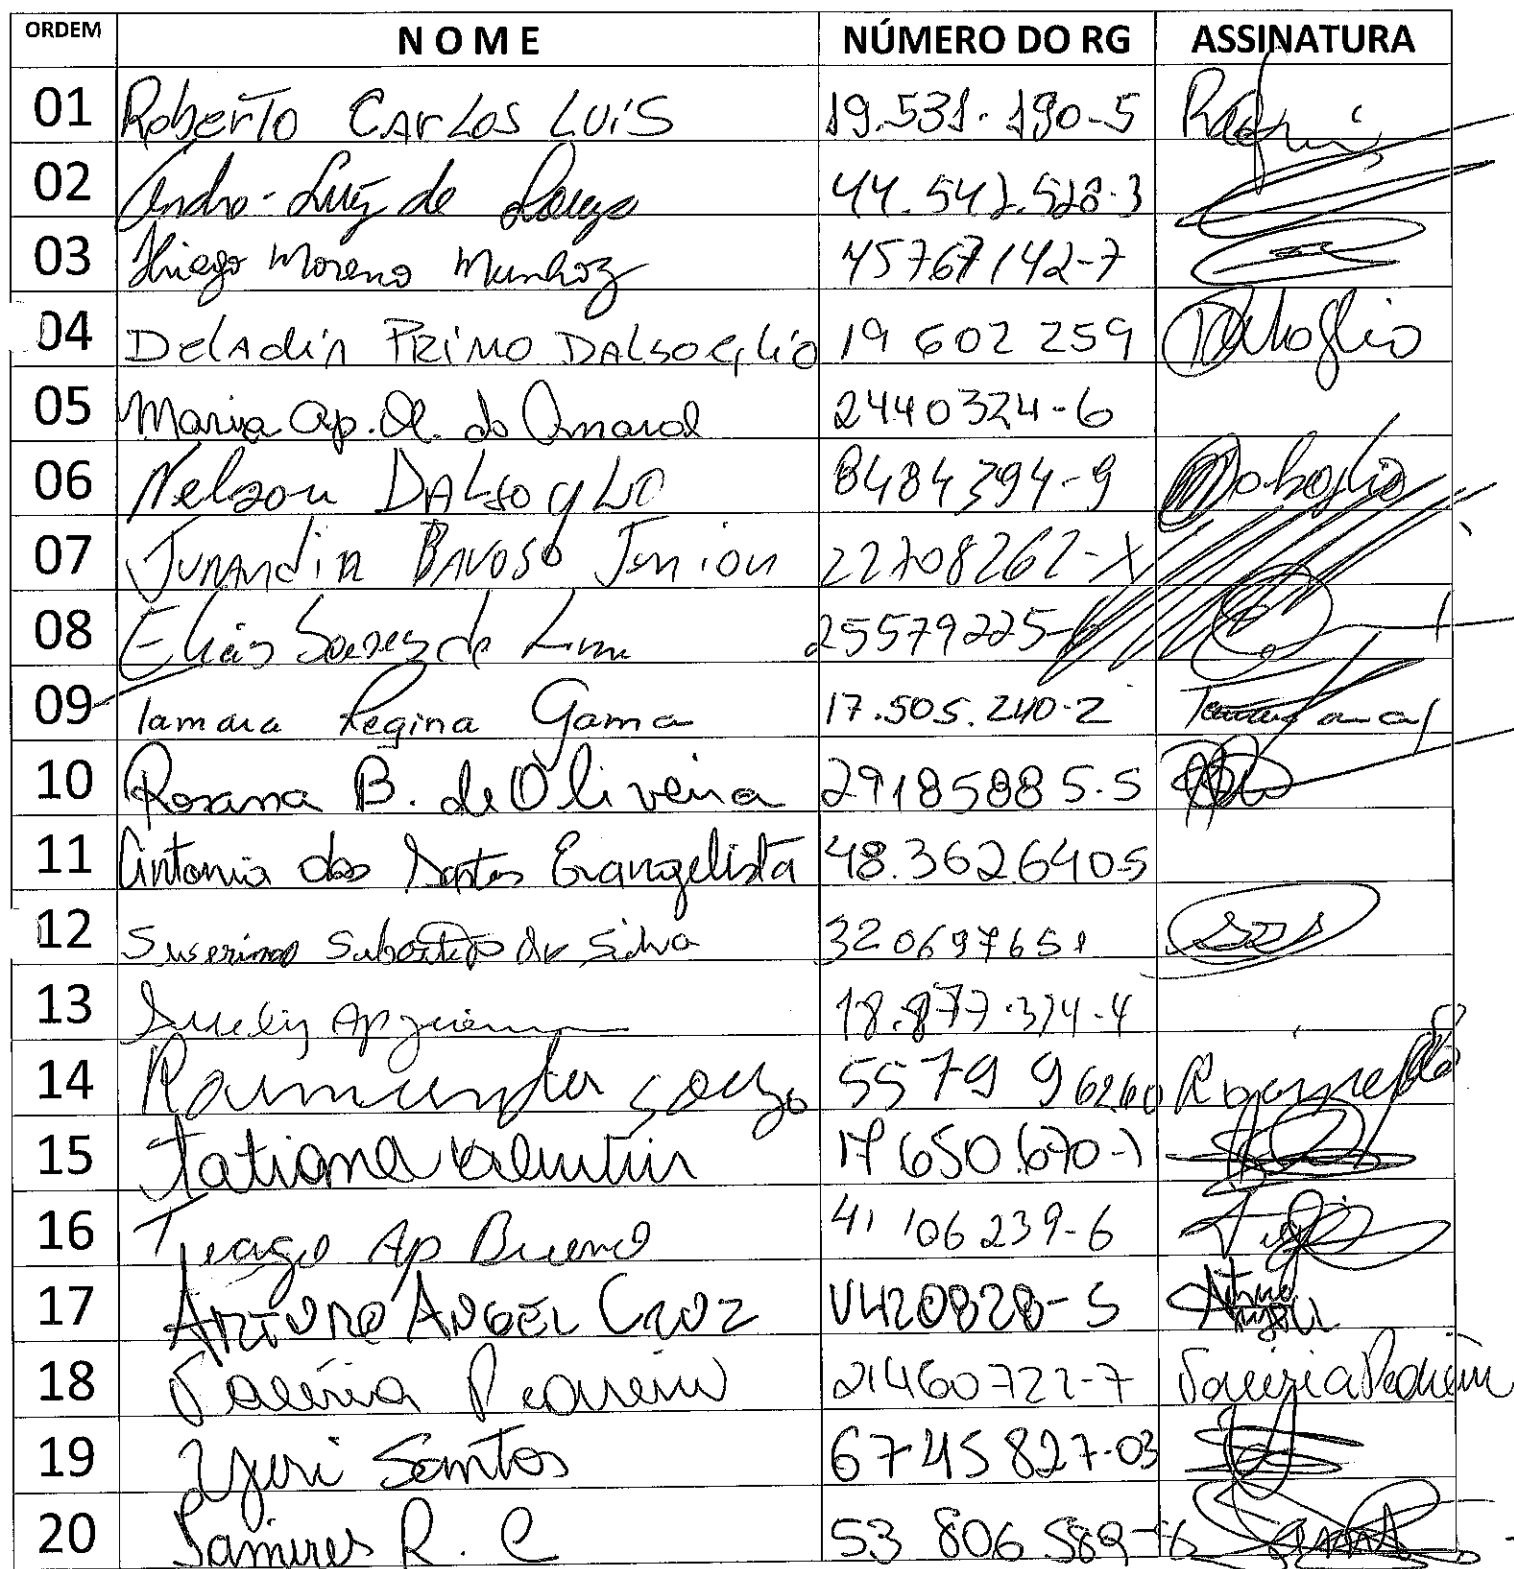 ORDEM NOME NÚMERO DO RG ASSINATURA
01 Roberto CArLos LUIS 19.531.190-5
02 Andre Luiz de Souza 44.542.528-3
03 Thiago Moreno Munhoz 45767142-7
04 DelAdin PRIMO DALSOGLIO 19 602 259 Dalsoglio
05 Maria Ap. do Amaral 2440324-6
06 Nelson DALSOGLIO 8484394-9 Dalsoglio
07 JURANDIR BAVOSO Junior 22708262-X
08 Elias Soares de Lima 25579225-
09 Tamara Regina Gama 17.505.240-2
10 Rosana B. de Oliveira 29185885-5
11 Antonia dos Santos Evangelista 48.3626405
12 da Silva 320697651
13 Suely Ap 18.877.374-4
14 Raimunda Souza 5579 96260
15 Tatiana Valentin 17650.670-1
16 Tiago Ap Bueno 41 106 239-6
17 ARTURO ANGEL CRUZ V420828-S Arturo Angel
18 Valéria Pedreiro 21460722-7 Valéria
19 Yuri Santos 6745827-03
20 Samires R. C 53 806 589-6